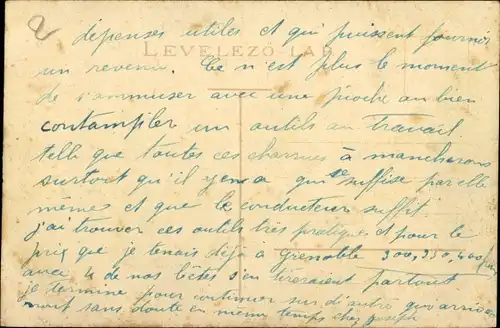 2
dépenses utiles et qui puissent fournir
LEVELEZÖ-LAP
un revenu. Ce n'est plus le moment
de s'ammuser avec une pioche ou bien
contampler un outils au travail
telle que toutes ces charrues à mancherons
surtout qu'il y en a qui se suffise par elle
mêmes et que le conducteur suffit.
j'ai trouver ces outils très pratiques et pour le
prix que je tenais déjà à Grenoble 300, 350, 400
avec 4 de nos bêtes s'en tireraient partout
je termine pour continuer sur d'autre qui
sans doute en même temps chez Joseph